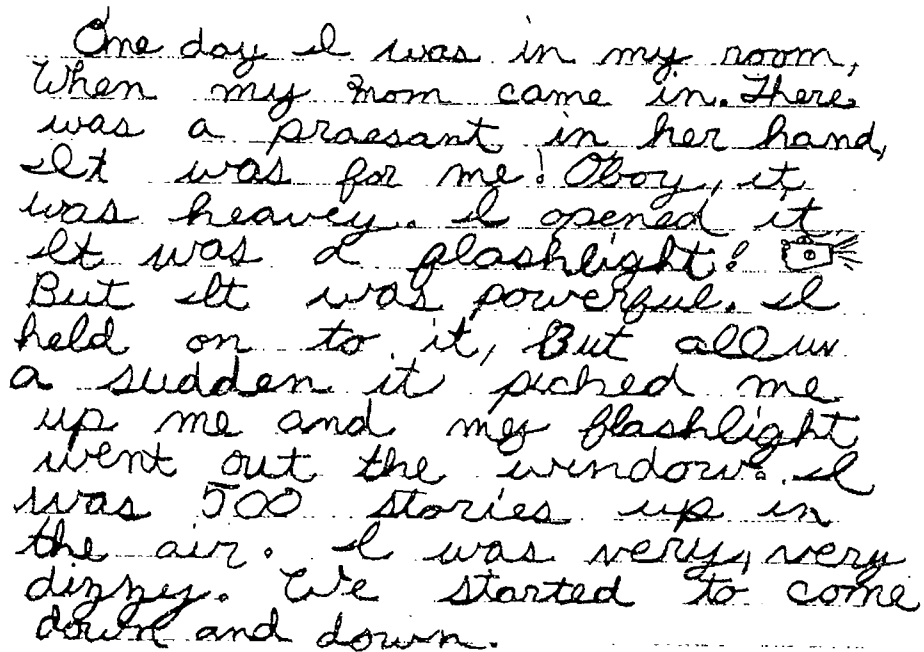 One day I was in my room,
When my mom came in. There
was a praesant in her hand,
It was for me! Oboy, it
was heavey. I opened it
It was a flashlight!
But It was powerful. I
held on to it, But all uv
a sudden it picked me
up me and my flashlight
went out the window. I
was 500 stories up in
the air. I was very, very
dizzy. We started to come
down and down.